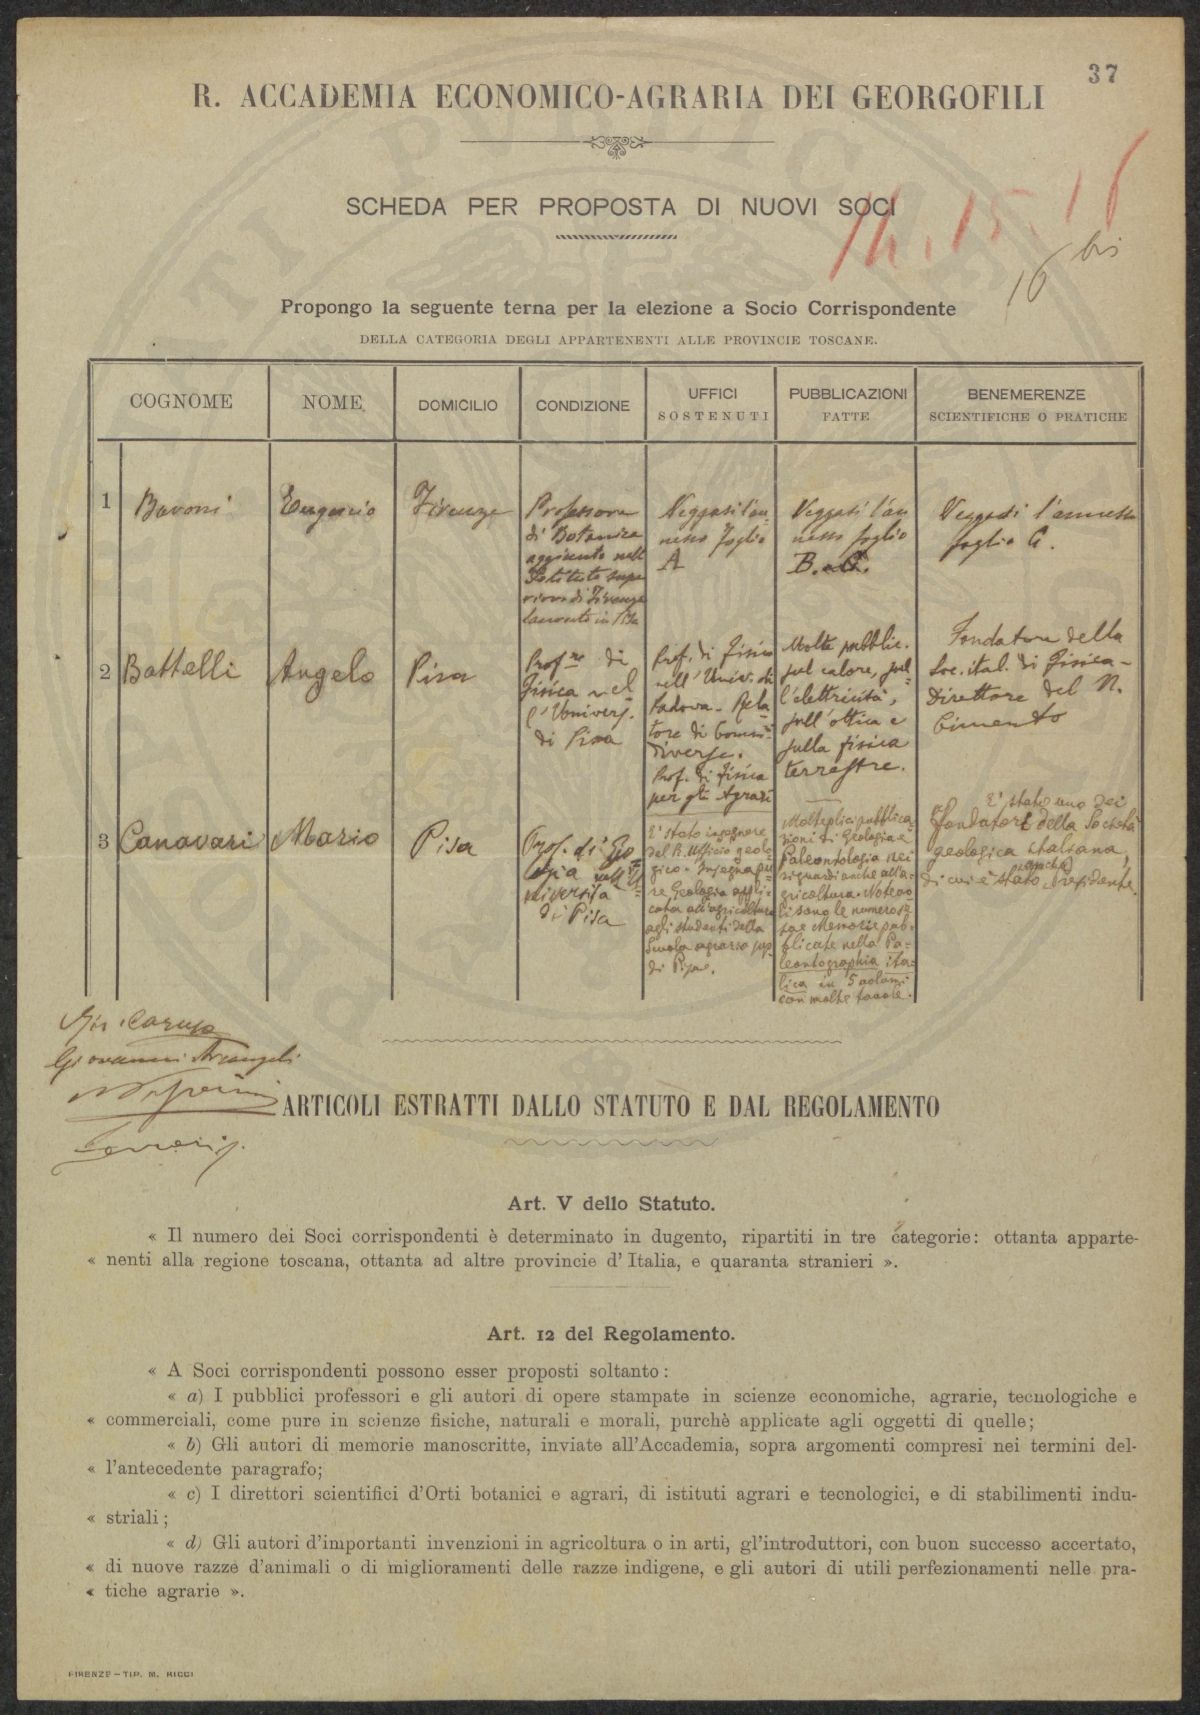 37
R. ACCADEMIA ECONOMICO-AGRARIA DEI GEORGOFILI
SCHEDA PER PROPOSTA DI NUOVI SOCI
14. 15. 16
16 bis
Propongo la seguente terna per la elezione a Socio Corrispondente
DELLA CATEGORIA DEGLI APPARTENENTI ALLE PROVINCIE TOSCANE.
COGNOME
NOME
DOMICILIO
CONDIZIONE
UFFICI
SOSTENUTI
PUBBLICAZIONI
FATTE
BENEMERENZE
SCIENTIFICHE O PRATICHE
1
Baroni
Eugenio
Firenze
Professore
di Botanica
aggiunto nell'
Istituto supe
riore di Firenze
laureato in Pisa
Veggasi l'an-
nesso foglio
A
Veggasi l'an
nesso foglio
B.
Veggasi l'annesso
foglio C.
2
Battelli
Angelo
Pisa
Prof.re di
fisica nel-
l'Univers.
di Pisa
Prof. di fisica
nell'Univ. di
Padova - Rela-
tore di Comi
diverse.
Prof. di fisica
per gli Agrari
Molte pubblic.
sul calore, sul-
l'elettricità,
sull'ottica e
sulla fisica
terrestre.
Fondatore della
Soc. ital. di fisica -
Direttore del N.
Cimento
3
Canavari
Mario
Pisa
Prof. di Geo
logia nell'U-
niversità
di Pisa
E' stato ingegnere
del R. Ufficio geolo-
gico - Insegna pu-
re Geologia appli-
cata all'agricoltura
agli studenti della
Scuola agraria sup.
di Pisa.
Molteplici pubblica-
zioni di Geologia e
Paleontologia nei
riguardi anche all'a-
gricoltura. Notevo-
li sono le numerose
sue Memorie pub-
blicate nella Pa-
leontographia ita-
lica in 5 volumi
con molte tavole.
E' stato uno dei
fondatori della Società
geologica italiana,
di cui è stato anche Presidente.
G. Caruso
Giovanni Arcangeli
ARTICOLI ESTRATTI DALLO STATUTO E DAL REGOLAMENTO
Art. V dello Statuto.
« Il numero dei Soci corrispondenti è determinato in dugento, ripartiti in tre categorie: ottanta apparte-
« nenti alla regione toscana, ottanta ad altre provincie d'Italia, e quaranta stranieri ».
Art. 12 del Regolamento.
« A Soci corrispondenti possono esser proposti soltanto:
« a) I pubblici professori e gli autori di opere stampate in scienze economiche, agrarie, tecnologiche e
« commerciali, come pure in scienze fisiche, naturali e morali, purchè applicate agli oggetti di quelle;
« b) Gli autori di memorie manoscritte, inviate all'Accademia, sopra argomenti compresi nei termini del-
« l'antecedente paragrafo;
« c) I direttori scientifici d'Orti botanici e agrari, di istituti agrari e tecnologici, e di stabilimenti indu-
« striali;
« d) Gli autori d'importanti invenzioni in agricoltura o in arti, gl'introduttori, con buon successo accertato,
« di nuove razze d'animali o di miglioramenti delle razze indigene, e gli autori di utili perfezionamenti nelle pra-
« tiche agrarie ».
FIRENZE - TIP. M. RICCI